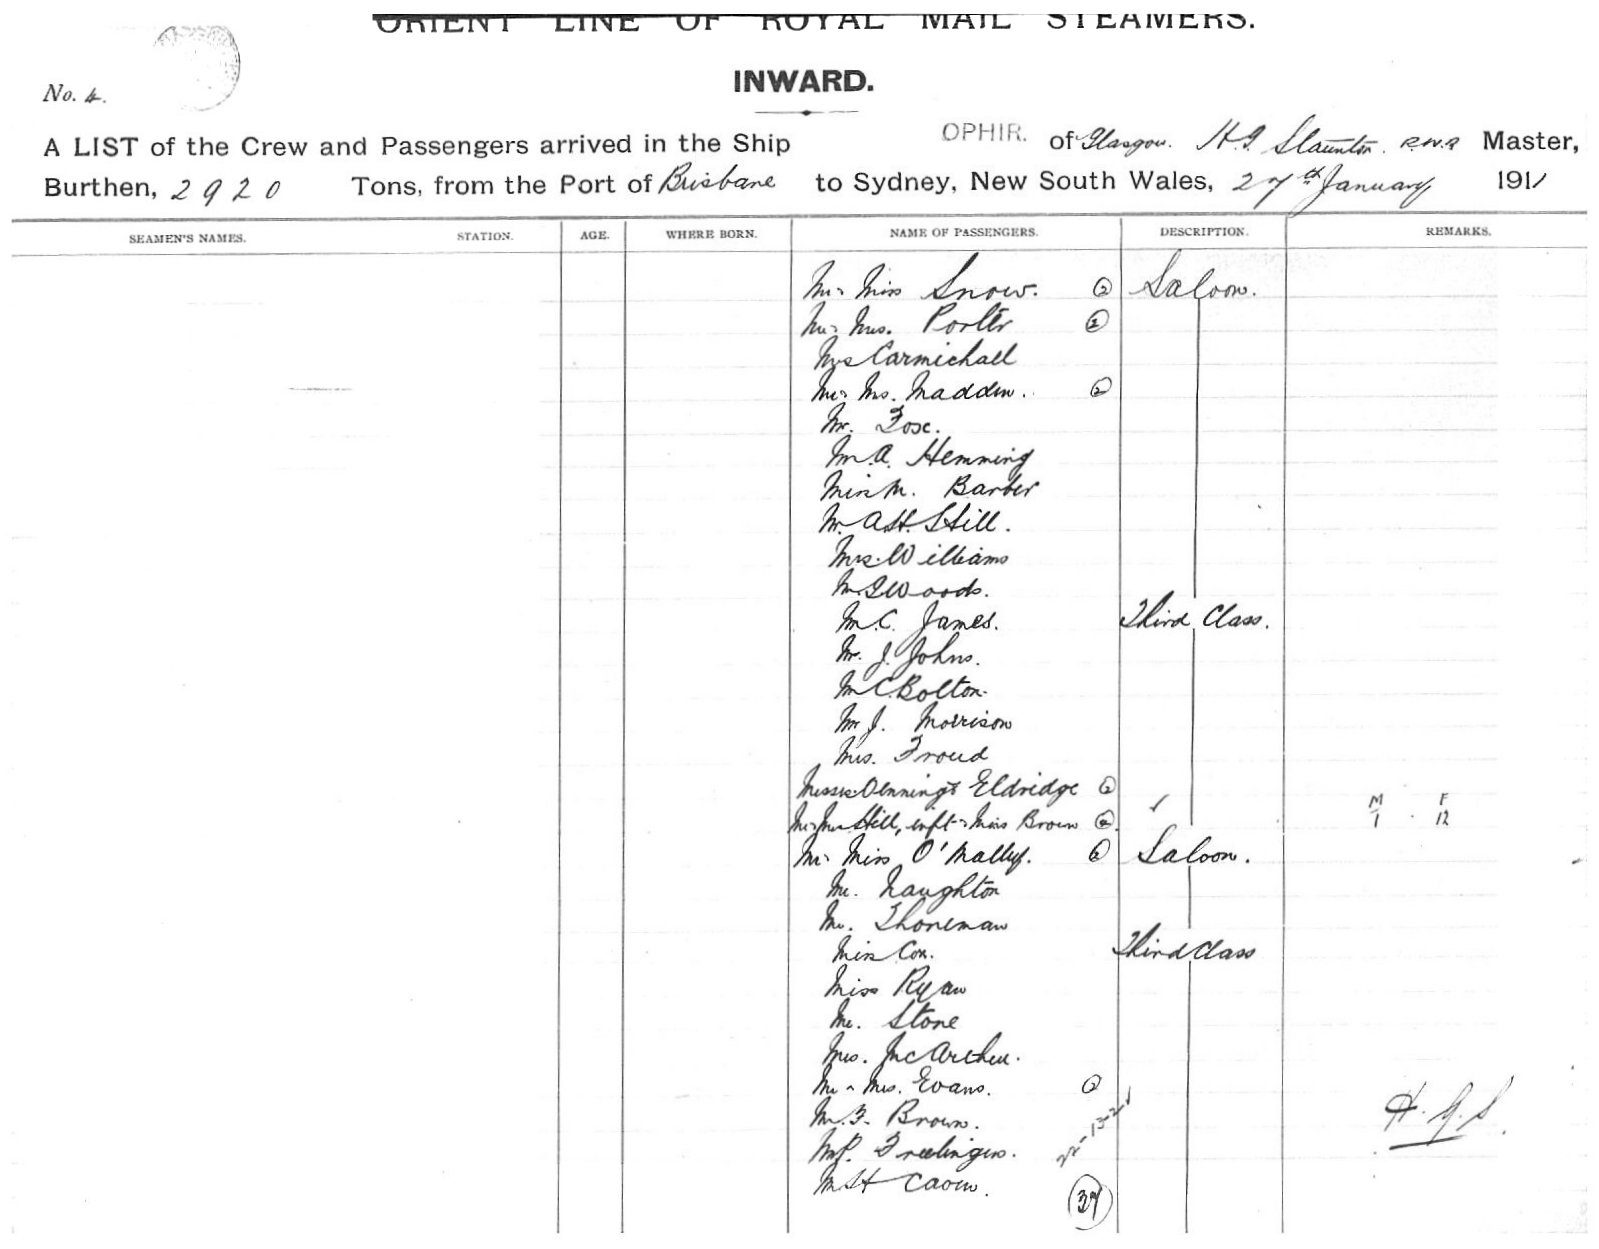 ORIENT LINE OF ROYAL MAIL STEAMERS.
INWARD.
No. 4.
A LIST of the Crew and Passengers arrived in the Ship OPHIR. of Glasgow. H.G. Staunton. R.N.R Master,
Burthen, 2920 Tons, from the Port of Brisbane to Sydney, New South Wales, 27th January 1911
SEAMEN'S NAMES. STATION. AGE. WHERE BORN. NAME OF PASSENGERS. DESCRIPTION. REMARKS.
Mr & Miss Snow. 2 Saloon.
Mr & Mrs. Porter 2
Mrs Carmichall
Mr & Mrs. Madden. 2
Mr. Fox.
Mr A. Hemming
Miss M. Barber
Mr. A.H. Still.
Mrs. Williams
Mr. G Woods.
Mr C. James. Third Class.
Mr. J. Johns.
Mr C Bolton.
Mr J. Morrison
Mrs. Froud
Messrs Denning & Eldridge 2
Mr & Mrs Hill, inft & Miss Brown 4 M F
1 12
Mr & Miss O'Mally. 2 Saloon.
Mr. Naughton
Mr. Thoneman
Miss Cox. Third Class
Miss Ryan
Mr. Stone
Mrs. McArthur.
Mr & Mrs. Evans. 2
Mr. F. Brown. 22-13-2 H.G.S.
Mr P.
Mr H
37